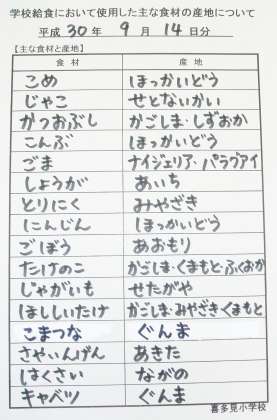 学校給食において使用した主な食材の産地について
平成 30 年 9 月 14 日分
【主な食材と産地】
食材 産地
こめ ほっかいどう
じゃこ せとないかい
かつおぶし かごしま・しずおか
こんぶ ほっかいどう
ごま ナイジェリア・パラグアイ
しょうが あいち
とりにく みやざき
にんじん ほっかいどう
ごぼう あおもり
たけのこ かごしま・くまもと・ふくおか
じゃがいも せたがや
ほししいたけ かごしま・みやざき・くまもと
こまつな ぐんま
さやいんげん あきた
はくさい ながの
キャベツ ぐんま
喜多見小学校